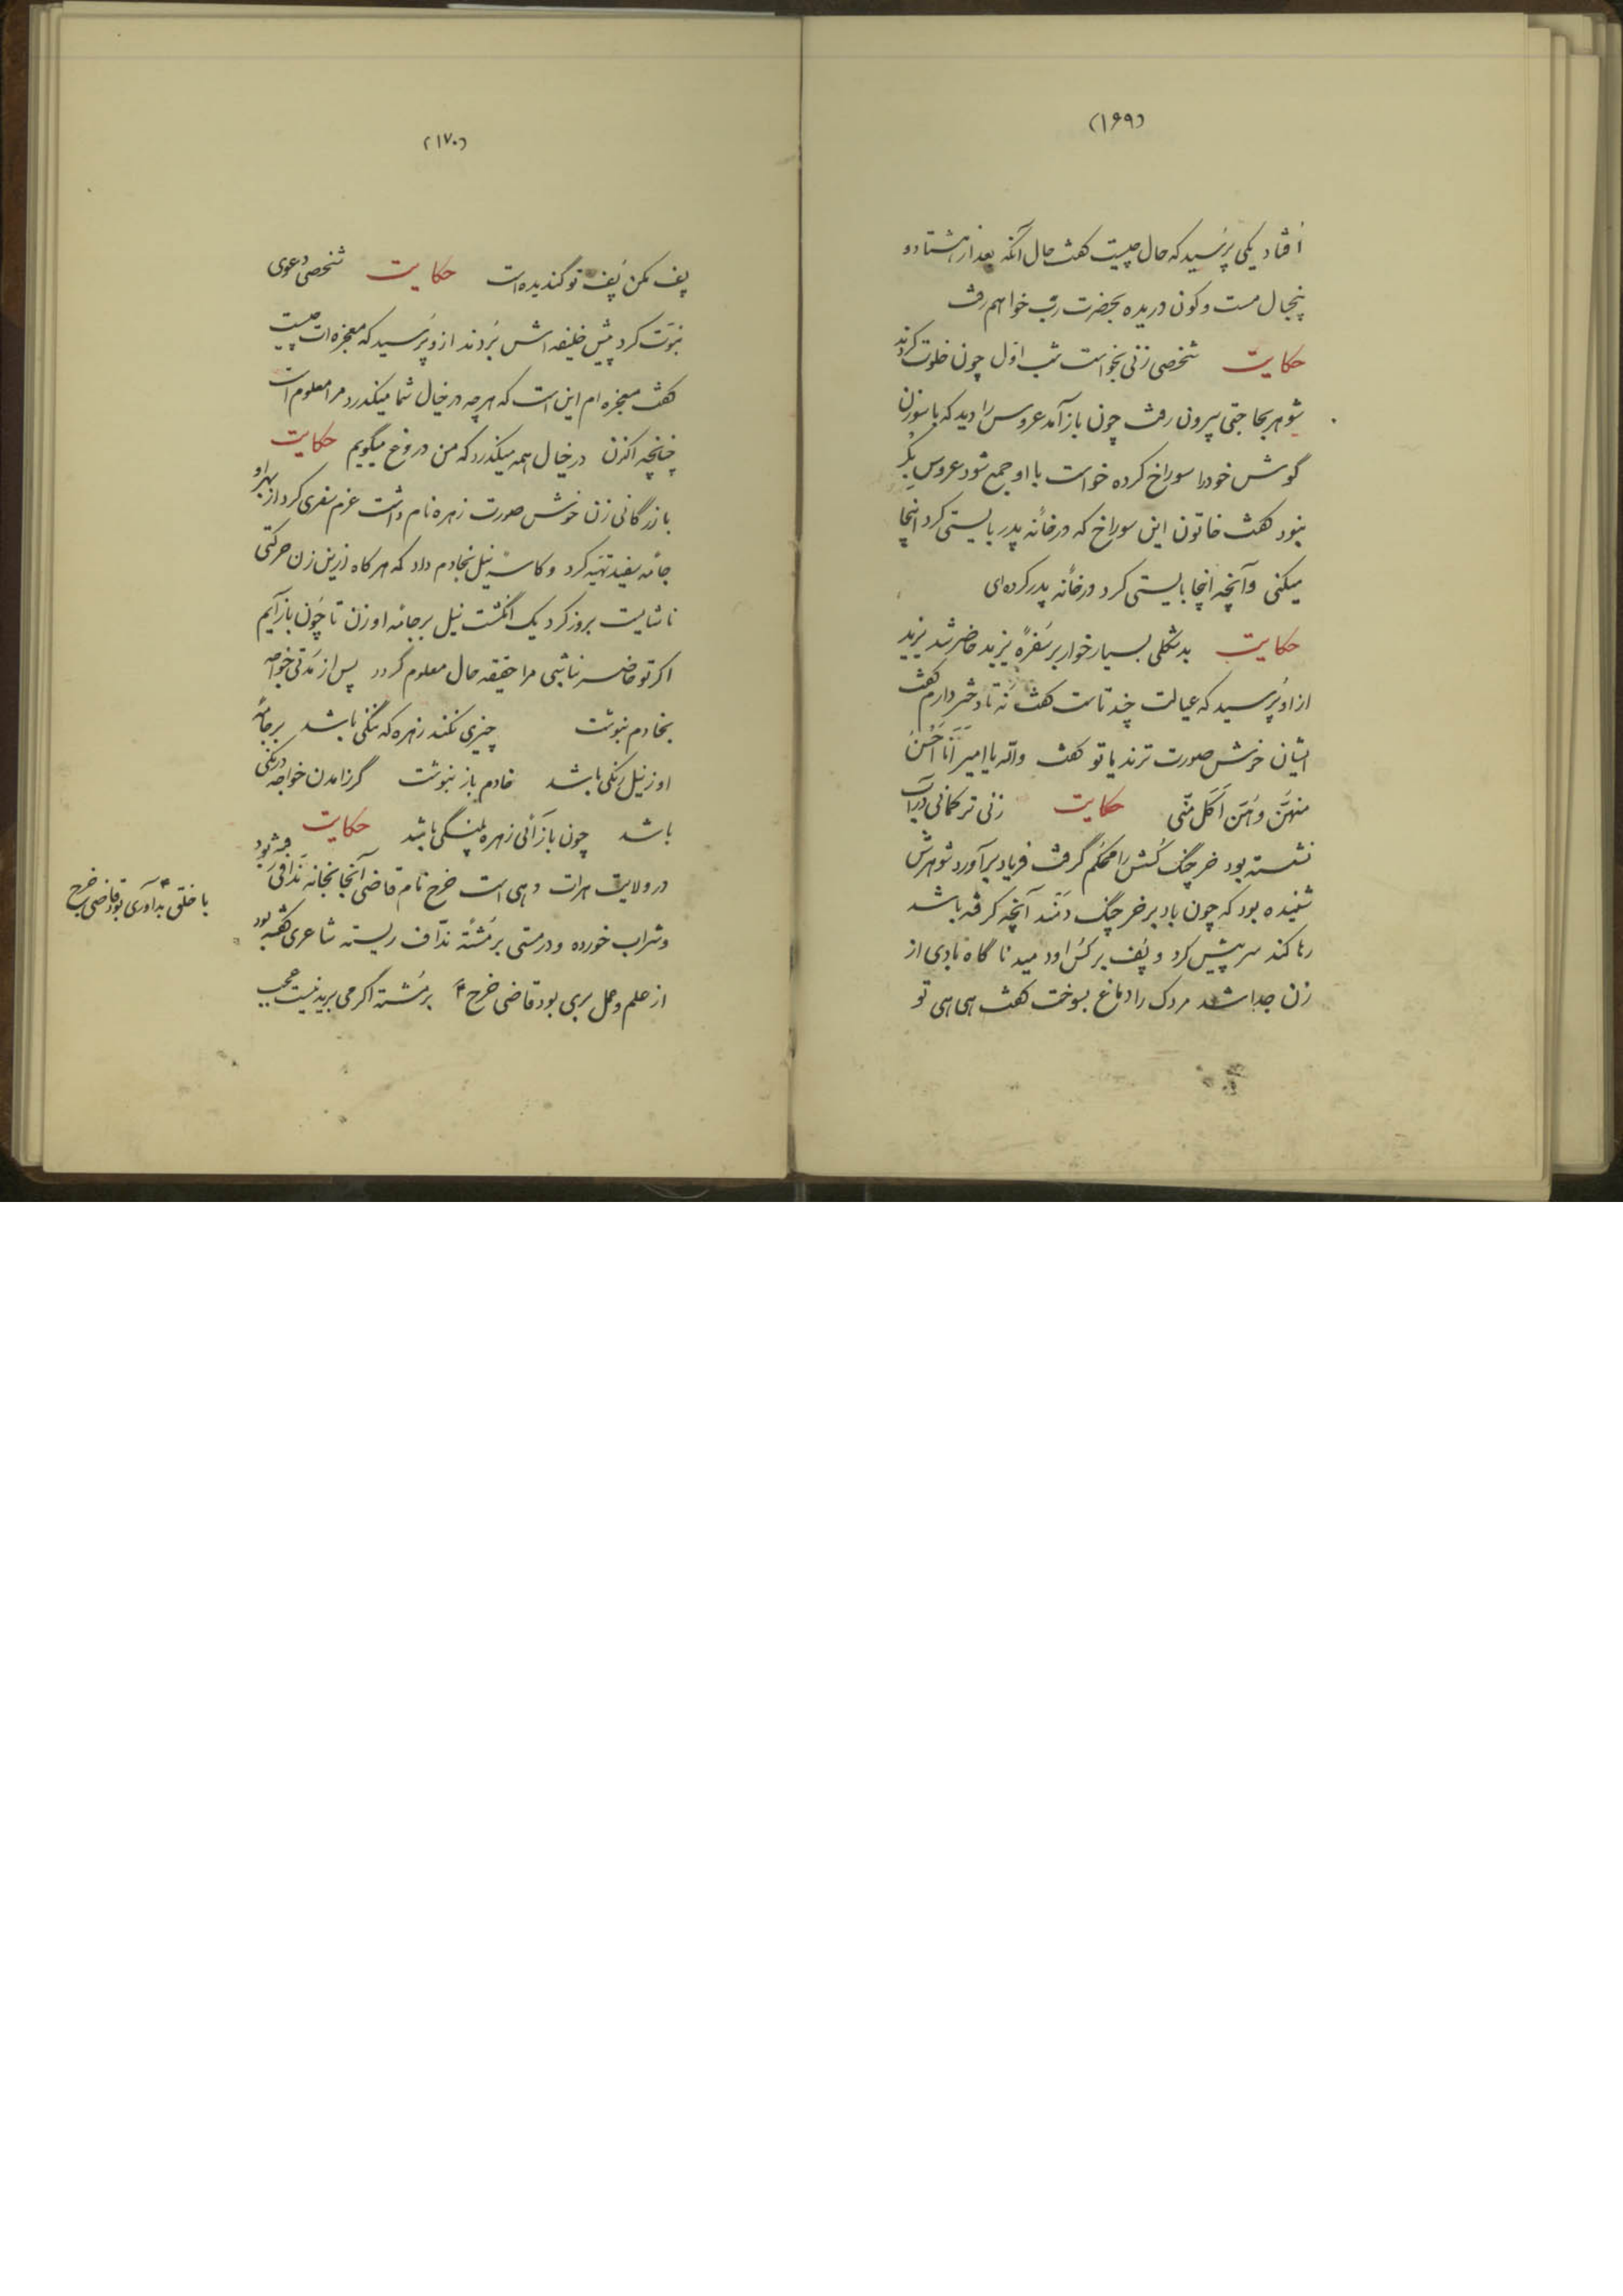 (۱۶۹)
اُفتاد یکی پرسید که حال چیست گفت حال آنکه بعد از هشتاد و
پنجسال مست و کون دریده بحضرت رب خواهم رفت
حکایت شخصی زنی بخواست شب اول چون خلوت کردند
شوهر بحاجتی بیرون رفت چون باز آمد عروس را دید که با سوزن
گوش خود را سوراخ کرده خواست با او جمع شود عروس بکر
نبود گفت خاتون این سوراخ که در خانهٔ پدر بایستی کرد اینجا
میکنی و آنچه اینجا بایستی کرد در خانهٔ پدر کرده‌ای
حکایت بدشکلی بسیار خوار بر سفرهٔ یزید حاضر شد یزید
از او پُرسید که عیالت چند تاست گفت نُه تا دختر دارم گفت
ایشان خوش صورت ترند یا تو گفت والله یا امیر اَنَا اَحْسَنُ
منهنَّ و هُنّ اَکَل منّی حکایت زنی ترکمانی در آب
نشسته بود خرچنگ کُسش را محکم گرفت فریاد بر آورد شوهرش
شنیده بود که چون باد بر خرچنگ دَمَند آنچه گرفته باشد
رها کند سر پیش کرد و پُف بر کُس او دمید ناگاه بادی از
زن جدا شد مردک را دماغ بسوخت گفت هی هی تو
(۱۷۰)
پف مکن پُف تو گندیده است حکایت شخصی دعوی
نبوّت کرد پیش خلیفه اش بُردند از و پُرسید که معجزه ات چیست
گفت معجزه ام این است که هر چه در خیال شما میگذرد مرا معلوم است
چنانچه اکنون در خیال همه میگذرد که من دروغ میگویم حکایت
بازرگانی زن خوش صورت زهره نام داشت عزم سفری کرد از بهر او
جامهٔ سفید تهیّه کرد و کاسهٔ نیل بخادم داد که هر گاه ازین زن حرکتی
ناشایست بروز کرد یک انگشت نیل بر جامهٔ او زن تا چون باز آیم
اگر تو حاضر نباشی مرا حقیقه حال معلوم گردد پس از مُدّتی خواجه
بخادم نبوشت چیزی نکند زهره که ننگی باشد بر جامهٔ
او ز نیل رنگی باشد خادم باز نبوشت گر ز آمدن خواجه درنگی
باشد چون باز آئی زهره پلنگی باشد حکایت
در ولایت هرات دهی است خرج نام قاضی آنجا بخانه نَدّافی رفته بود
و شراب خورده و در مستی بر مُشتهٔ ندّاف ریسته شاعری گفته بود
از علم و عمل بری بود قاضی خرج بر مُشته اگر می برید نیست عجب
با خلق بد آوری بود قاضی خرج